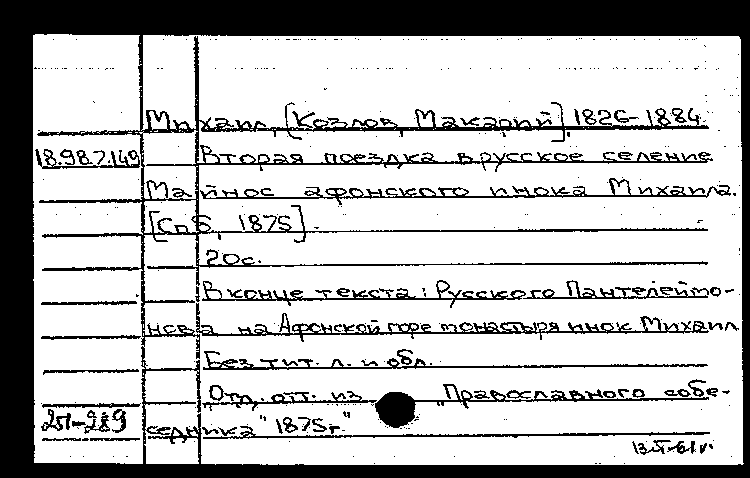 Михаил, [Козлов, Макарий], 1826-1884.
18.98.7.149 Вторая поездка в русское селение
Майнос афонского инока Михаила.
[Спб, 1875].
20с.
В конце текста: Русского Пантелеймо-
нова на Афонской горе монастыря инок Михаил
Без тит. л. и обл.
Отд. отт. из "Православного собе-
251-289 седника" 1875г."